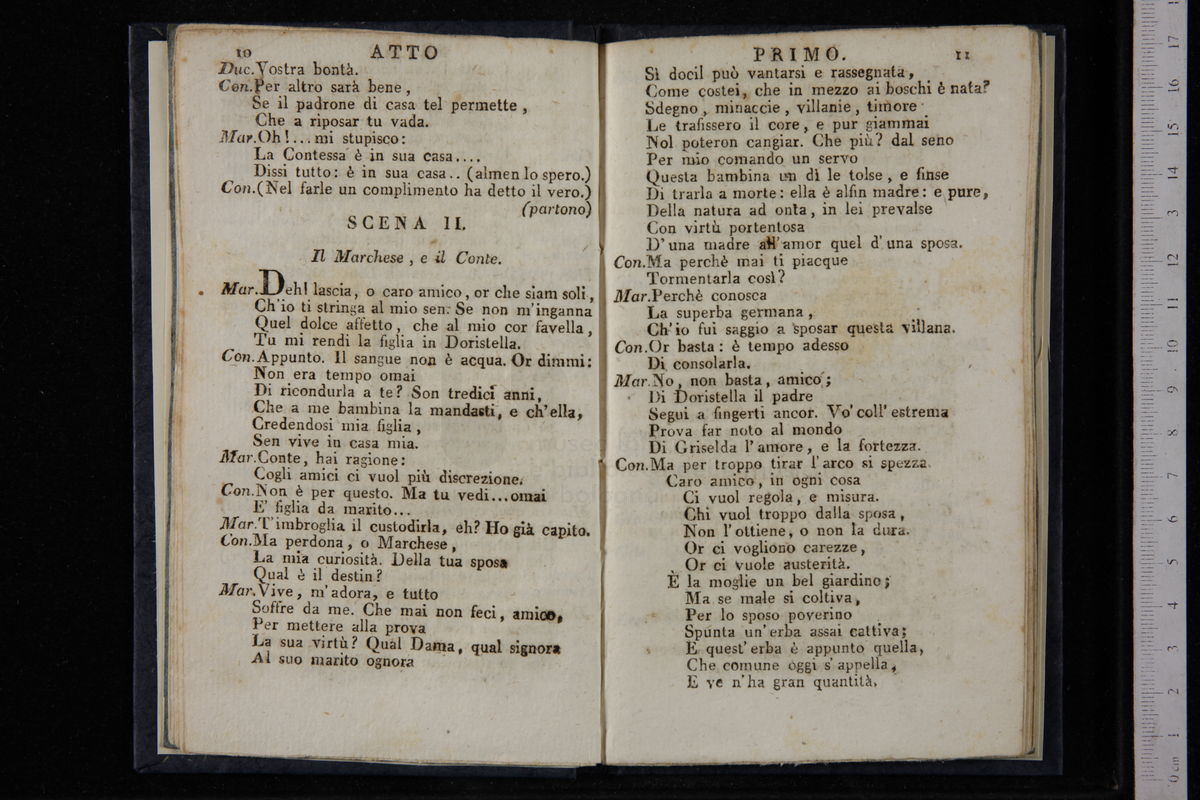 10 ATTO
Duc. Vostra bontà.
Con. Per altro sarà bene,
Se il padrone di casa tel permette,
Che a riposar tu vada.
Mar. Oh!... mi stupisco:
La Contessa è in sua casa....
Dissi tutto: è in sua casa.. (almen lo spero.)
Con. (Nel farle un complimento ha detto il vero.)
(partono)
SCENA II.
Il Marchese, e il Conte.
Mar. Deh! lascia, o caro amico, or che siam soli,
Ch'io ti stringa al mio sen: Se non m'inganna
Quel dolce affetto, che al mio cor favella,
Tu mi rendi la figlia in Doristella.
Con. Appunto. Il sangue non è acqua. Or dimmi:
Non era tempo omai
Di ricondurla a te? Son tredici anni,
Che a me bambina la mandasti, e ch'ella,
Credendosi mia figlia,
Sen vive in casa mia.
Mar. Conte, hai ragione:
Cogli amici ci vuol più discrezione.
Con. Non è per questo. Ma tu vedi...omai
E' figlia da marito...
Mar. T'imbroglia il custodirla, eh? Ho già capito.
Con. Ma perdona, o Marchese,
La mia curiosità. Della tua sposa
Qual è il destin?
Mar. Vive, m'adora, e tutto
Soffre da me. Che mai non feci, amico,
Per mettere alla prova
La sua virtù? Qual Dama, qual signora
Al suo marito ognora
PRIMO. 11
Sì docil può vantarsi e rassegnata,
Come costei, che in mezzo ai boschi è nata?
Sdegno, minaccie, villanie, timore
Le trafissero il core, e pur giammai
Nol poteron cangiar. Che più? dal seno
Per mio comando un servo
Questa bambina un dì le tolse, e finse
Di trarla a morte: ella è alfin madre: e pure,
Della natura ad onta, in lei prevalse
Con virtù portentosa
D'una madre all'amor quel d'una sposa.
Con. Ma perchè mai ti piacque
Tormentarla così?
Mar. Perchè conosca
La superba germana,
Ch'io fui saggio a sposar questa villana.
Con. Or basta: è tempo adesso
Di consolarla.
Mar. No, non basta, amico;
Di Doristella il padre
Segui a fingerti ancor. Vo' coll'estrema
Prova far noto al mondo
Di Griselda l'amore, e la fortezza.
Con. Ma per troppo tirar l'arco si spezza.
Caro amico, in ogni cosa
Ci vuol regola, e misura.
Chi vuol troppo dalla sposa,
Non l'ottiene, o non la dura.
Or ci vogliono carezze,
Or ci vuole austerità.
È la moglie un bel giardino;
Ma se male si coltiva,
Per lo sposo poverino
Spunta un'erba assai cattiva;
E quest'erba è appunto quella,
Che comune oggi s'appella,
E ve n'ha gran quantità.